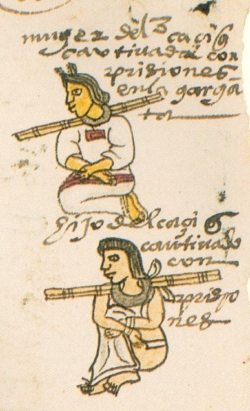 muger del caciq
cautivada con
prisiones
en la garga
ta
hijo del caciq
cautivado
con
prisio
nes